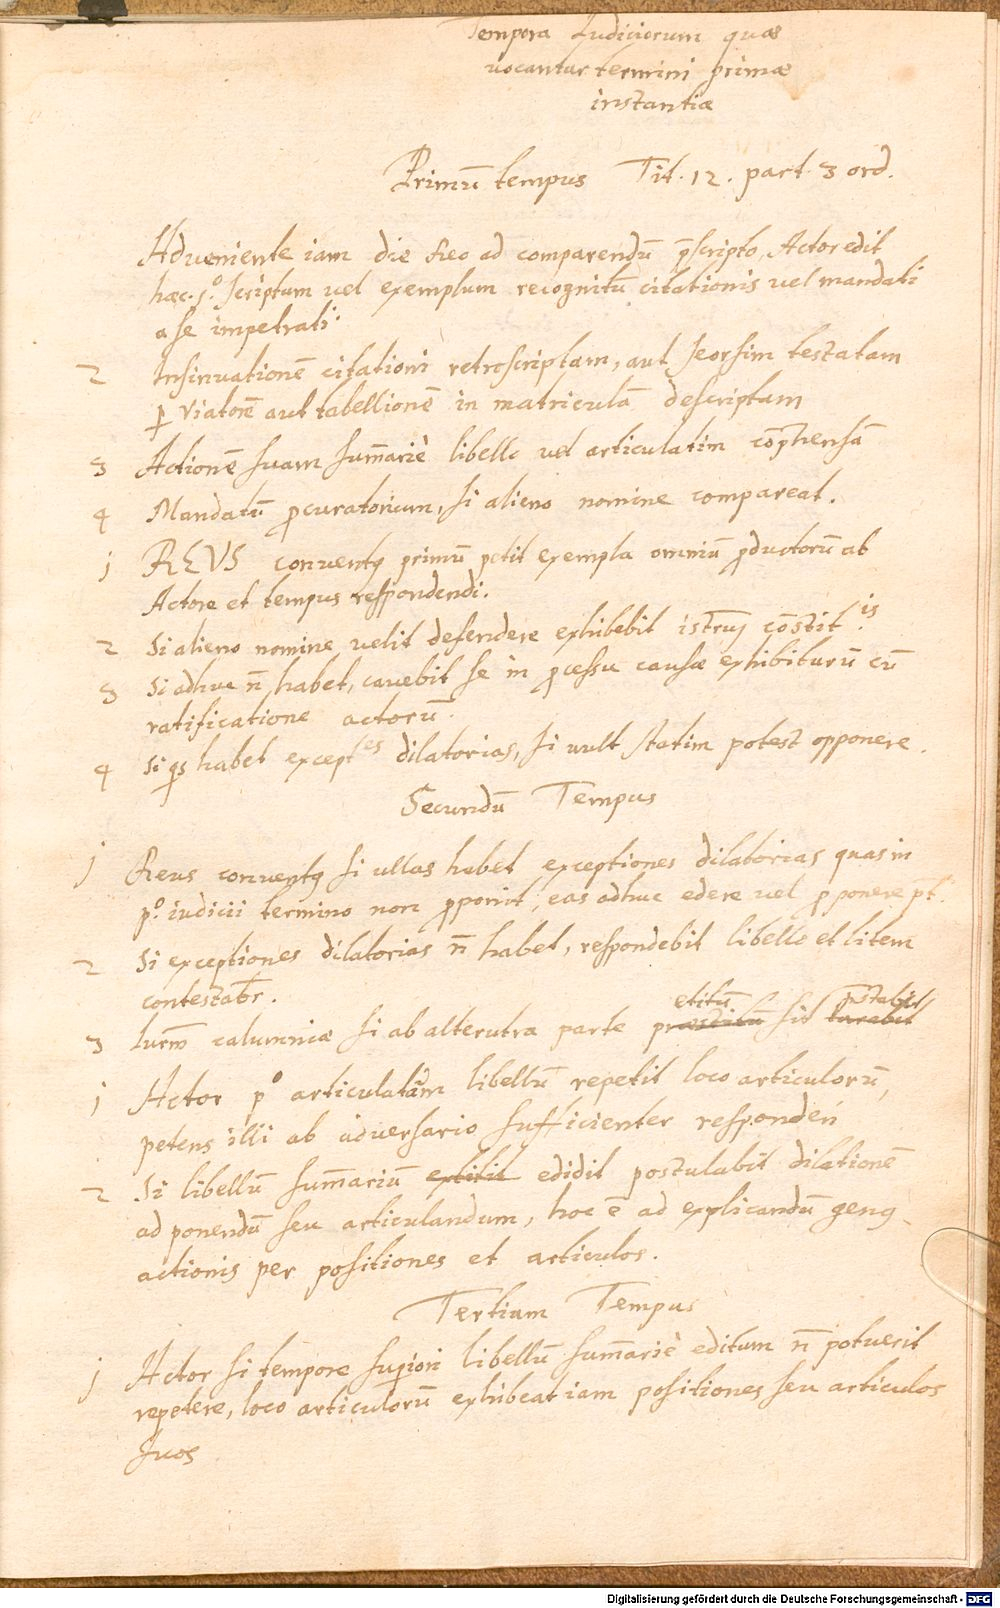 Tempora Judiciorum quae
vocantur termini primae
instantiae
Primū tempus Tit. 12. part. 3 ord.
Adveniente iam die Reo ad comparendū p̄scripto, Actor edit
haec. j.º scriptum vel exemplum recognitū citationis vel mandati
a se impetrati
2 Insinuationē citationi retroscriptam, aut seorsim testatam
ꝑ viatorē aut tabellionē in matriculā descriptam
3 Actionē suam sum̄arie libello vel articulatim cōp̄hensā
4 Mandatū ꝓcuratorium, si alieno nomine compareat.
j REVS conventꝰ primū petit exempla omniū ꝓductorū ab
Actore et tempus respondendi.
2 Si alieno nomine velit defendere exhibebit cōstit.is
3 Si adhuc n̄ habet, cavebit se in ꝓcessu causae exhibiturū cū
ratificatione actorū.
4 Si qs habet exceptes dilatorias, si vult statim potest opponere.
Secundū Tempus
j Reus conventꝰ si ullas habet exceptiones dilatorias quas in
pº. iudicii termino non ꝓponit, eas adhuc edere vel ꝓponere p̄t.
2 Si exceptiones dilatorias n̄ habet, respondebit libello et litem
contestabr.
3 Jurm̄ calumniae si ab alterutra parte praestitū etitū sit iurabit p̄stabit
j Actor pº articulatam libellū repetit loco articulorū,
petens illi ab adversario sufficienter responderi
2 Si libellū sum̄ariū extitit edidit postulabit dilationē
ad ponendū seu articulandum, hoc ē ad explicandū genꝰ
actionis per positiones et articulos.
Tertium Tempus
j Actor si tempore suꝑiori libellū sum̄arie editum n̄ potuerit
repetere, loco articulorū exhibeat iam positiones seu articulos
suos
Digitalisierung gefördert durch die Deutsche Forschungsgemeinschaft - DFG